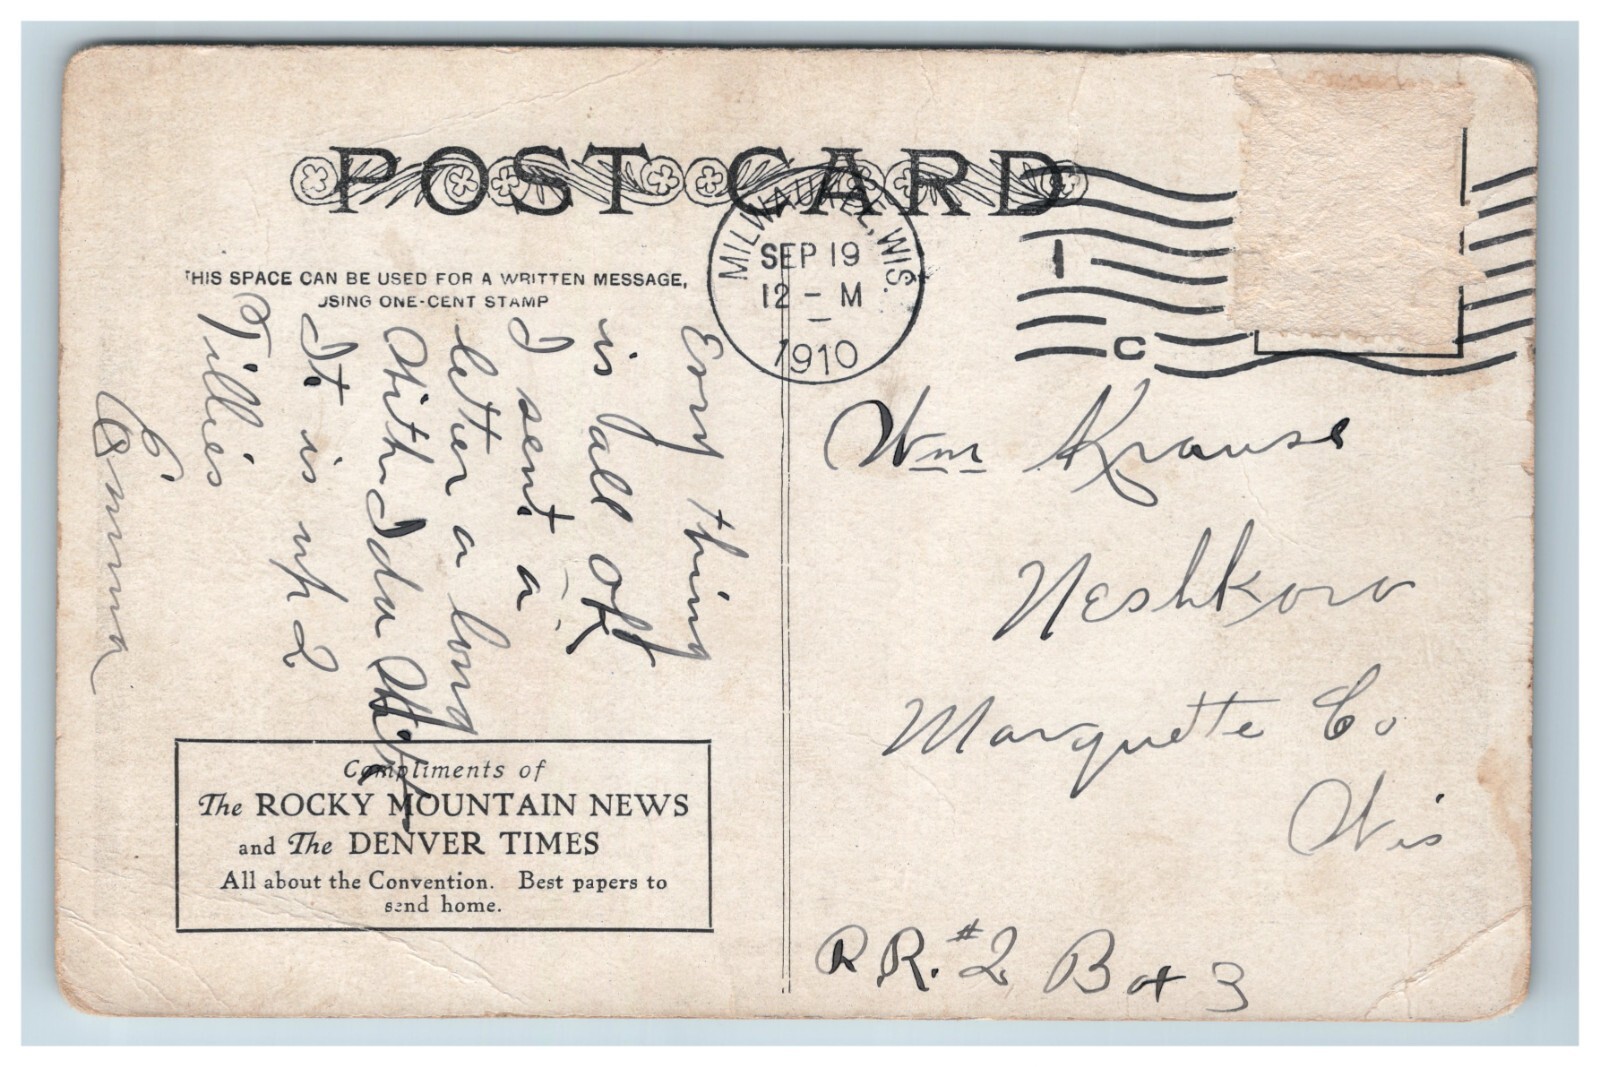 POST CARD
THIS SPACE CAN BE USED FOR A WRITTEN MESSAGE,
USING ONE-CENT STAMP
MILWAUKEE, WIS.
SEP 19
12 - M
1910
1
C
Every thing
is all OK
I sent a
letter a long
With Ida
It is up 2
Tillie's
Emma
Wm Krause
Neshkoro
Marquette Co
Wis
R R. #2 Box 3
Compliments of
The ROCKY MOUNTAIN NEWS
and The DENVER TIMES
All about the Convention. Best papers to
send home.